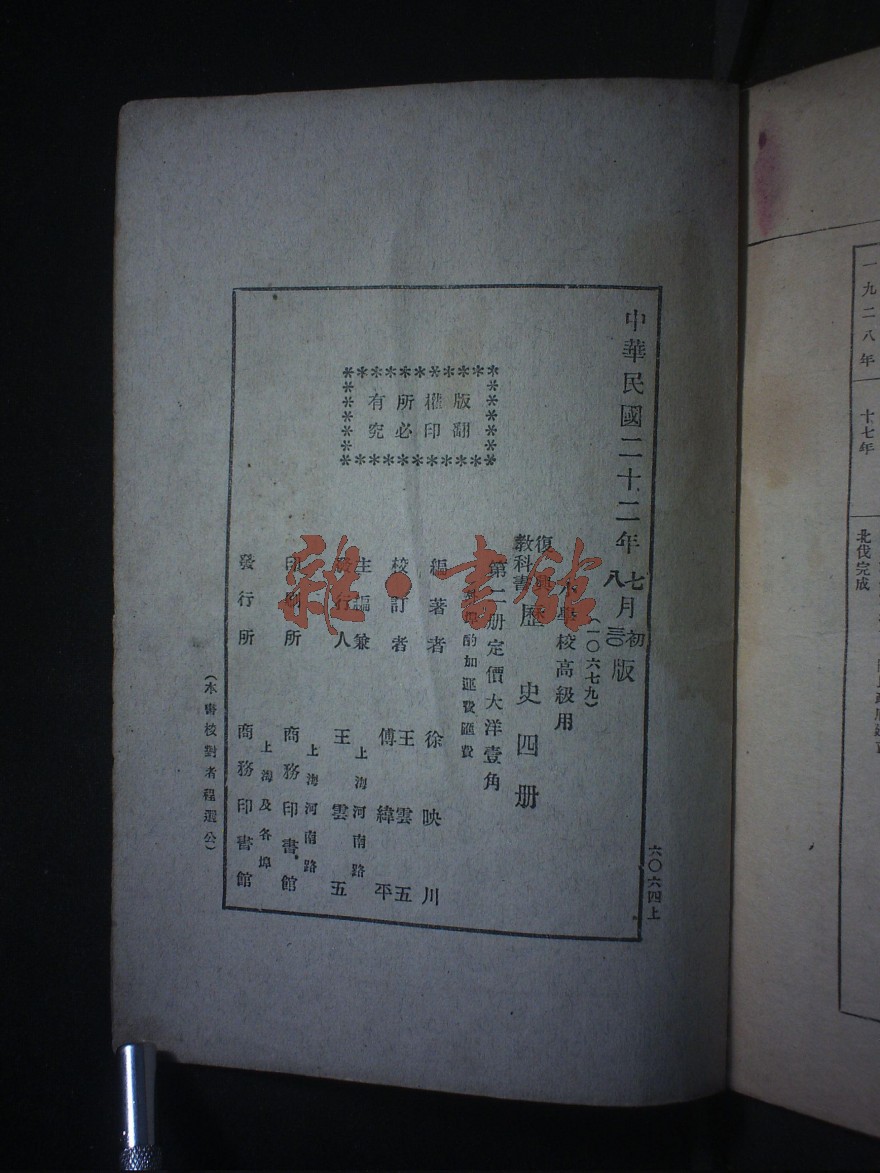 中華民國二十二年七月初版
八
(一〇六七九)
小學校高級用
復興教科書 歷史四册
第二册定價大洋壹角
酌加運費匯費
版權所有
翻印必究
編著者 徐映川
校訂者 王雲五 傅緯平
主編兼發行人 王雲五
上海河南路
印刷所 商務印書館
上海河南路
發行所 商務印書館
上海及各埠
(本書校對者程選公)
六〇六四上
一九二八年
十七年
北伐完成
雜·書館